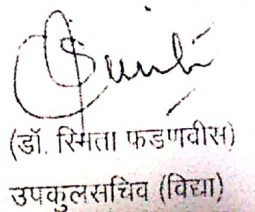 (डॉ. स्मिता फडणवीस)
उपकुलसचिव (विद्या)